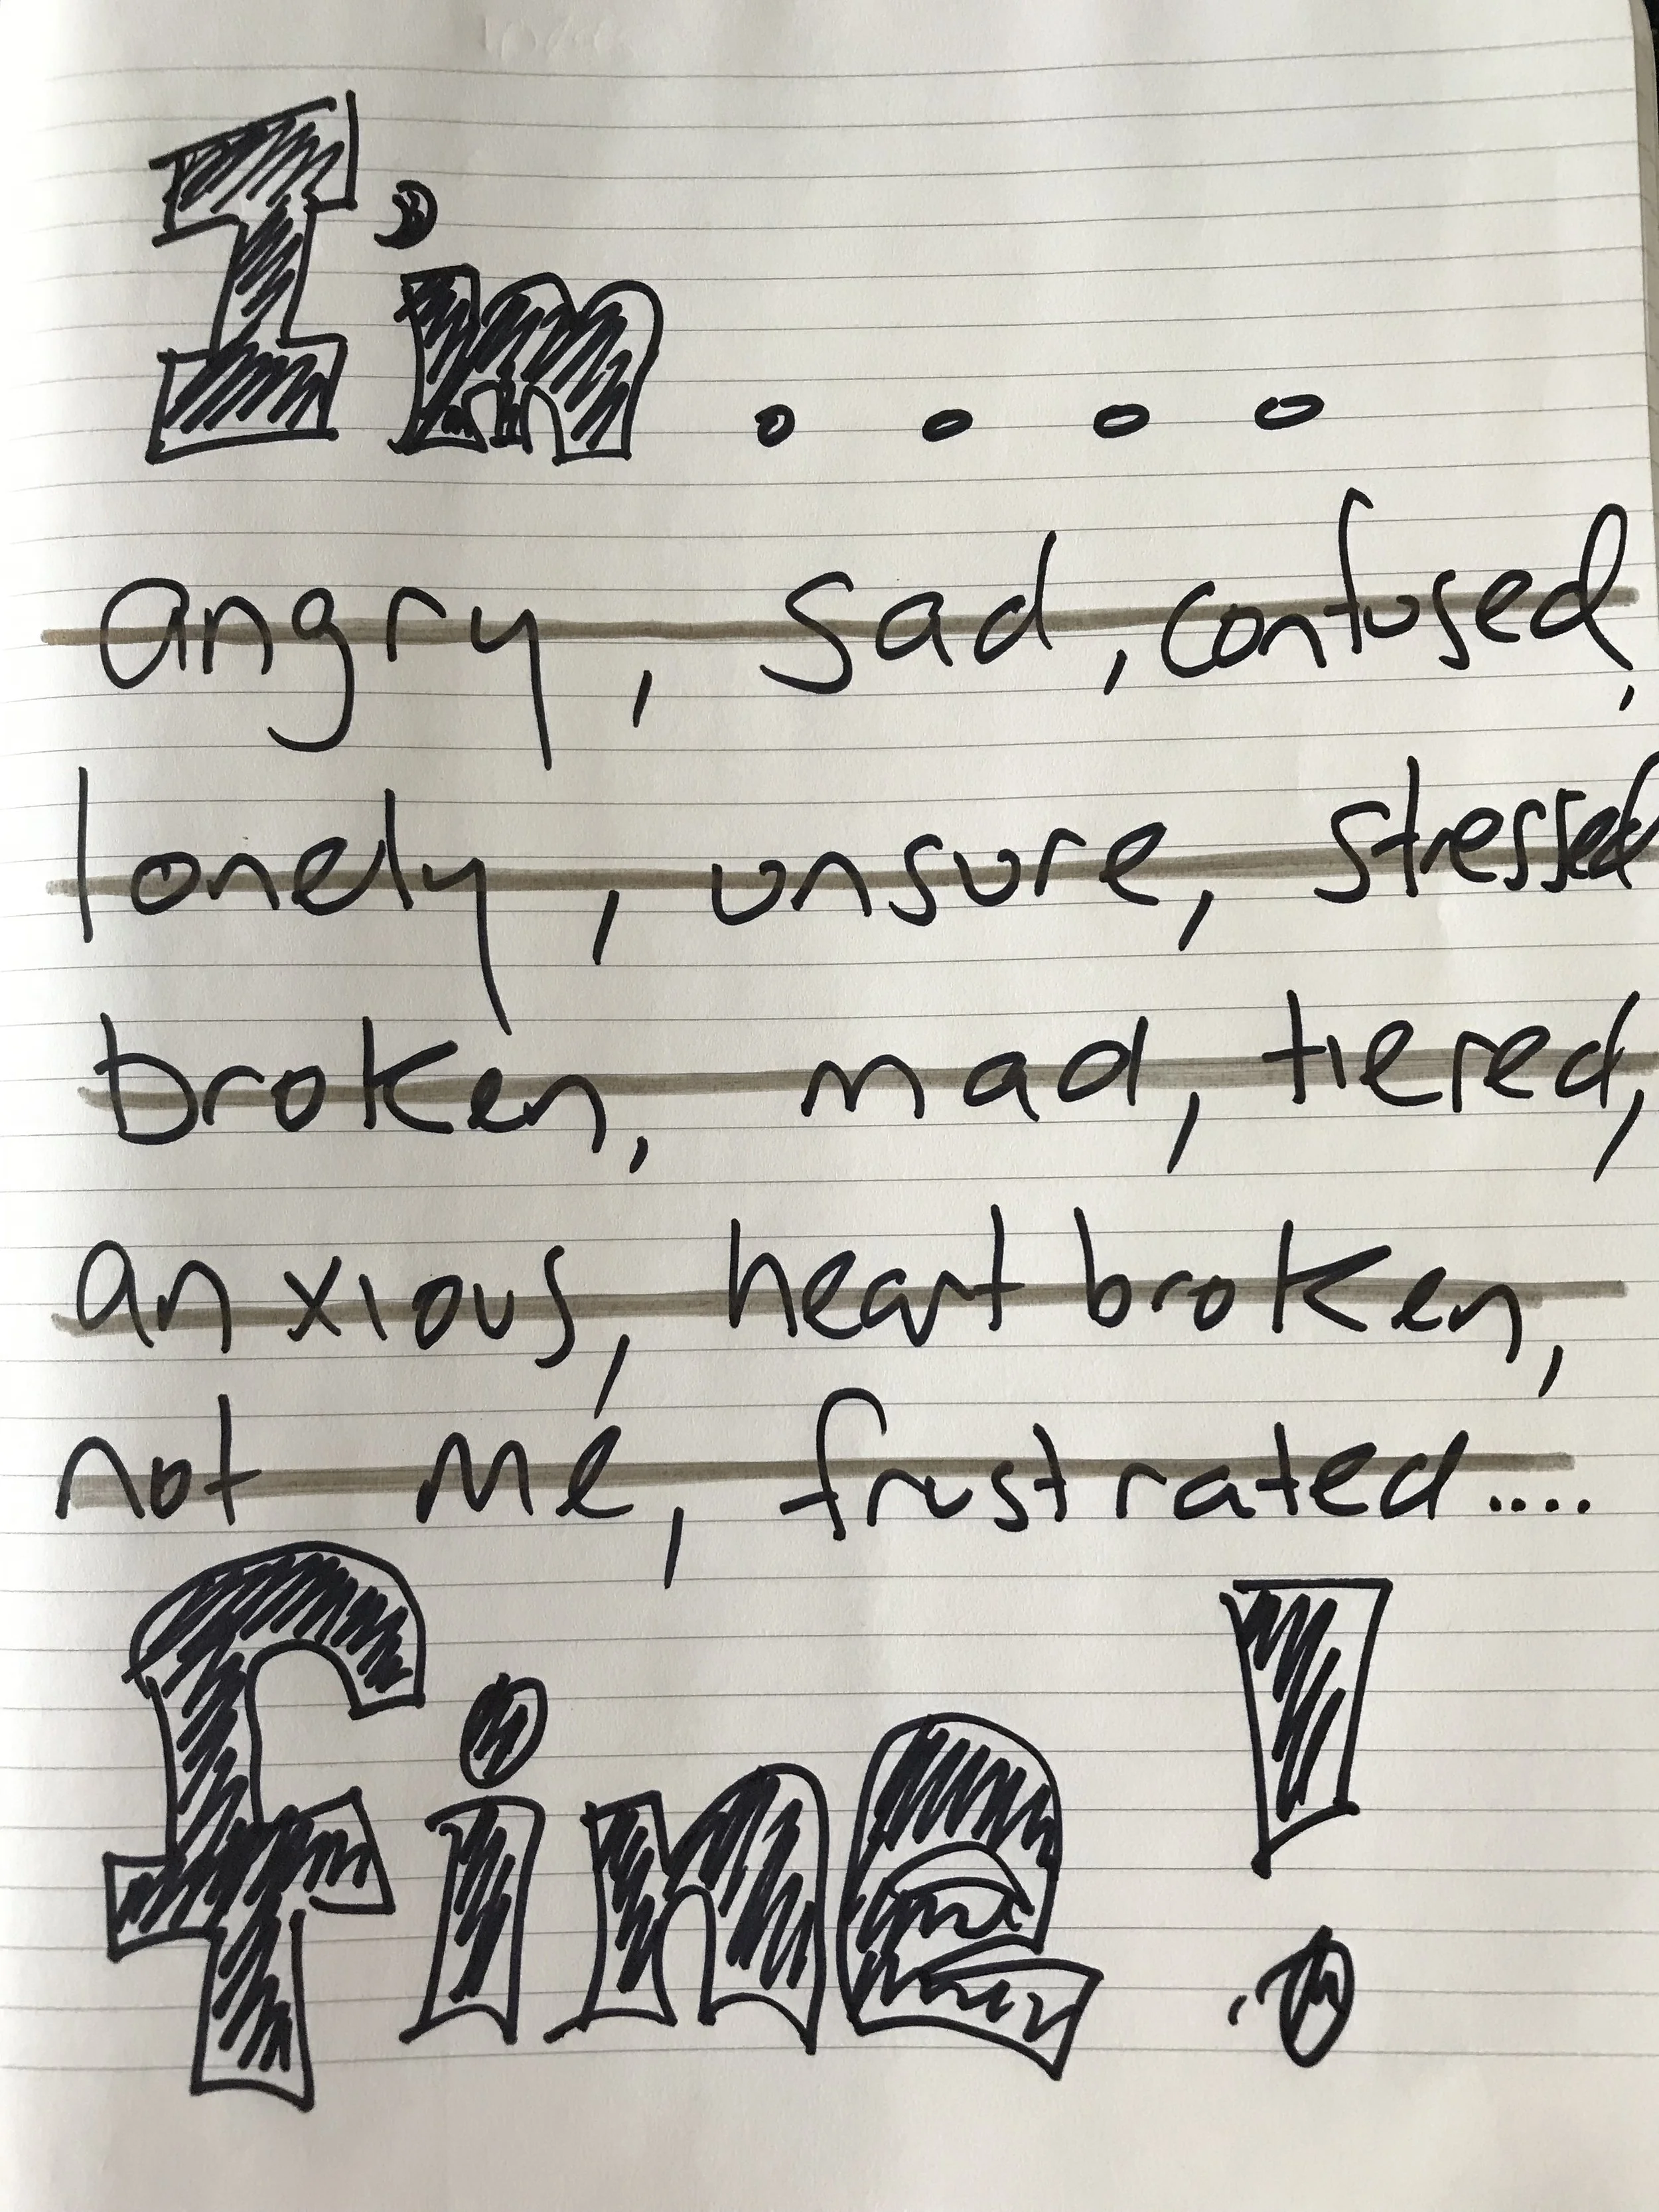 I'm ....
angry, sad, confused,
lonely, unsure, stressed
broken, mad, tiered,
anxious, heart broken,
not me, frustrated....
fine!